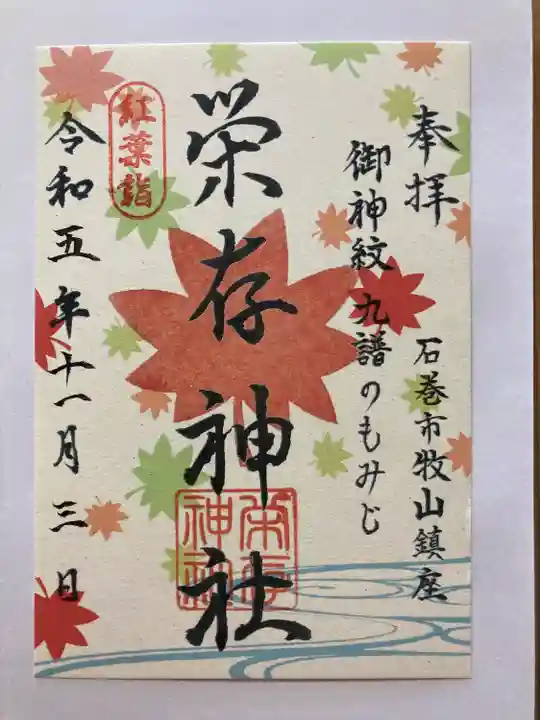 奉拝
石巻市牧山鎮座
御神紋九譜のもみじ
栄存神社
栄存神社
紅葉詣
令和五年十一月三日